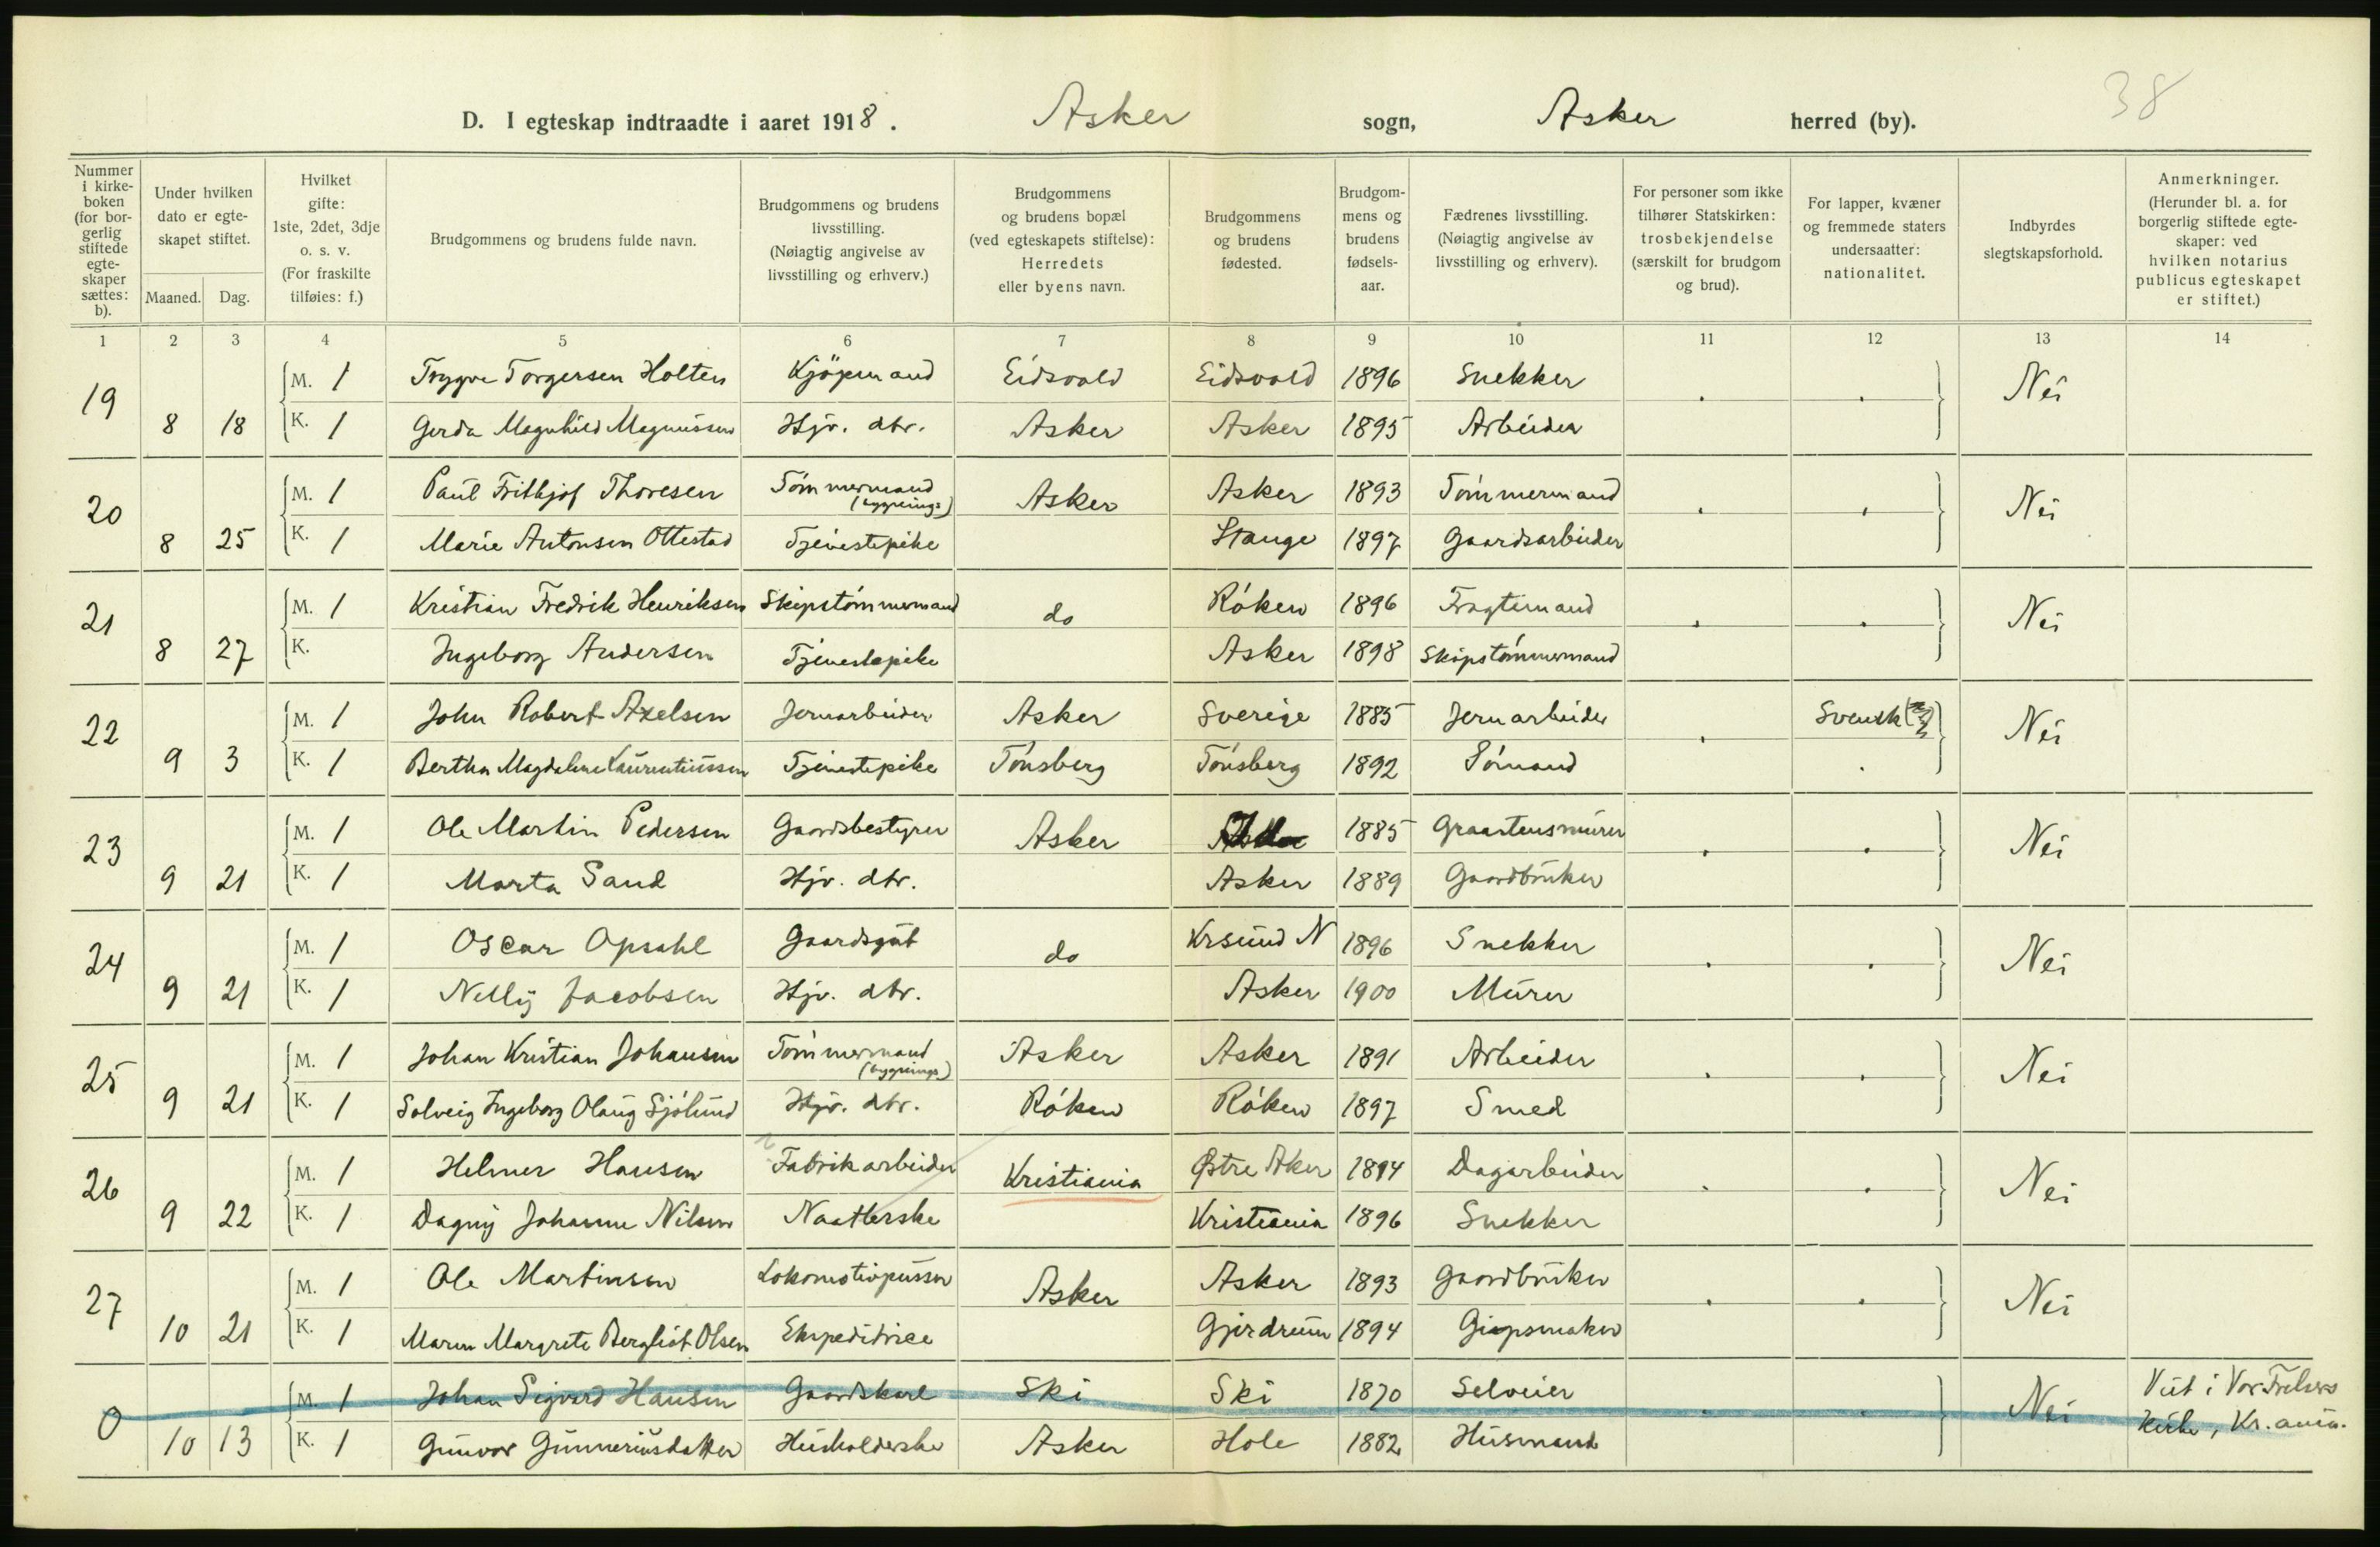 38
D. I egteskap indtraadte i aaret 1918. Asker sogn, Asker herred (by).
Nummer i kirke-boken (for bor-gerlig stiftede egte-skaper sættes: b).
Under hvilken dato er egte-skapet stiftet.
Maaned. Dag.
Hvilket gifte: 1ste, 2det, 3dje o. s. v. (For fraskilte tilføies: f.)
Brudgommens og brudens fulde navn.
Brudgommens og brudens livsstilling. (Nøiagtig angivelse av livsstilling og erhverv.)
Brudgommens og brudens bopæl (ved egteskapets stiftelse): Herredets eller byens navn.
Brudgommens og brudens fødested.
Brudgom-mens og brudens fødsels-aar.
Fædrenes livsstilling. (Nøiagtig angivelse av livsstilling og erhverv).
For personer som ikke tilhører Statskirken: trosbekjendelse (særskilt for brudgom og brud).
For lapper, kvæner og fremmede staters undersaatter: nationalitet.
Indbyrdes slegtskapsforhold.
Anmerkninger. (Herunder bl. a. for borgerlig stiftede egte-skaper: ved hvilken notarius publicus egteskapet er stiftet.)
1 2 3 4 5 6 7 8 9 10 11 12 13 14
19 M. 1 Trygve Torgersen Holten Kjöpmand Eidsvold Eidsvold 1896 Snekker Nei
8 18 K. 1 Gerda Magnhild Magnussen Hjv. dtr. Asker Asker 1895 Arbeider
20 M. 1 Paul Frithjof Thoresen Tömmermand (bygnings) Asker Asker 1893 Tömmermand Nei
8 25 K. 1 Marie Antonsen Ottestad Tjenestepike Stange 1897 Gaardsarbeider
21 M. 1 Kristian Fredrik Henriksen Skipstömmermand do Röken 1896 Fragtemand Nei
8 27 K. Ingeborg Andersen Tjenestepike Asker 1898 Skipstömmermand
22 M. 1 John Robert Axelsen Jernarbeider Asker Sverige 1885 Jernarbeider Svensk Nei
9 3 K. 1 Bertha Magdalene Laurentiussen Tjenestepike Tönsberg Tönsberg 1892 Sömand
23 M. 1 Ole Martin Pedersen Gaardsbestyrer Asker 1885 Graastensmurer Nei
9 21 K. 1 Marta Sand Hjv. dtr. Asker 1889 Gaardbruker
24 M. 1 Oscar Opsahl Gaardsgut do Krsund N 1896 Snekker Nei
9 21 K. 1 Nelly Jacobsen Hjv. dtr. Asker 1900 Murer
25 M. 1 Johan Kristian Johansen Tömmermand (bygnings) Asker Asker 1891 Arbeider Nei
9 21 K. 1 Solveig Ingeborg Olaug Sjölund Hjv. dtr. Röken Röken 1897 Smed
26 M. 1 Helmer Hansen Fabrikarbeider Kristiania Østre Aker 1894 Dagarbeider Nei
9 22 K. 1 Dagny Johanne Nilsen Naatlerske Kristiania 1896 Snekker
27 M. 1 Ole Martinsen Lokomotivpusser Asker Asker 1893 Gaardbruker Nei
10 21 K. 1 Maren Margrete Bergliot Olsen Ekspeditrice Gjerdrum 1894 Gipsmaker
0 M. 1 Johan Sigvard Hansen Gaardskarl Ski Ski 1870 Selveier Nei Viet i Vor Frelsers
10 13 K. 1 Gunvor Gunneriusdatter Husholderske Asker Hole 1882 Husmand kirke, Kr.ania.